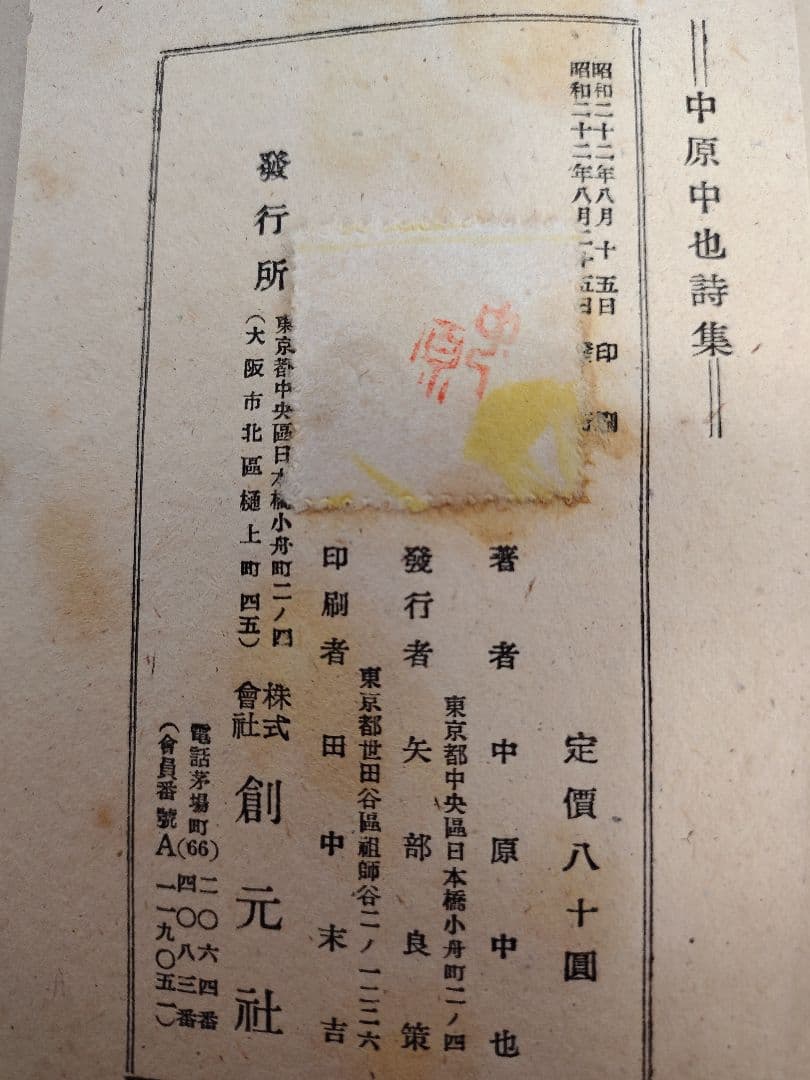 中原中也詩集
昭和二十二年八月十五日 印刷
昭和二十二年八月二十五日 發行
定價八十圓
著者 中原中也
東京都中央區日本橋小舟町二ノ四
發行者 矢部良策
東京都世田谷區祖師谷二ノ一二二六
印刷者 田中末吉
發行所
東京都中央區日本橋小舟町二ノ四
(大阪市北區樋上町四五)
株式會社 創元社
電話茅場町(66)二〇六四番
四〇八三番
(會員番號A一一九〇五一)
中原